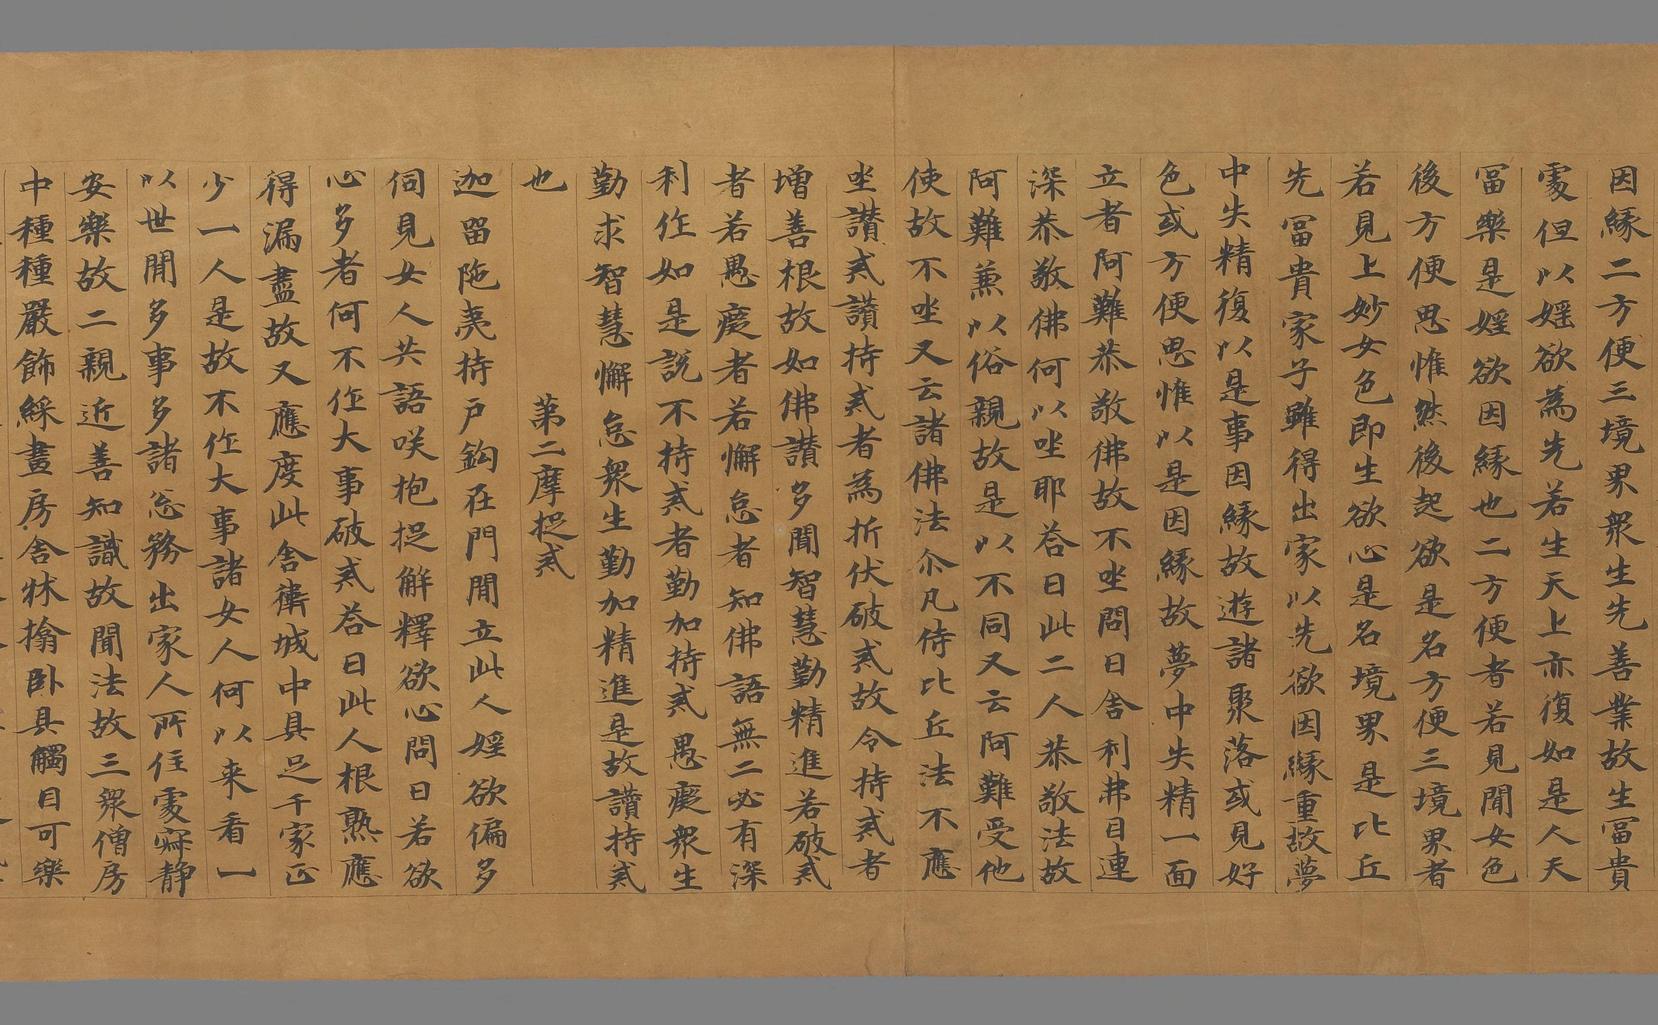 因緣二方便三境界衆生先善業故生冨貴
處但以婬欲為先若生天上亦復如是人天
冨樂是婬欲因緣也二方便者若見聞女色
後方便思惟然後起欲是名方便三境界者
若見上妙女色即生欲心是名境界是比丘
先冨貴家子雖得出家以先欲因緣重故夢
中失精復以是事因緣故遊諸聚落或見好
色或方便思惟以是因緣故夢中失精一面
立者阿難恭敬佛故不坐問曰舍利弗目連
深恭敬佛何以坐耶荅曰此二人恭敬法故
阿難兼以俗親故是以不同又云阿難受他
使故不坐又云諸佛法尒凡侍比丘法不應
坐讃戒讃持戒者為折伏破戒故令持戒者
增善根故如佛讃多聞智慧勤精進若破戒
者若愚癡者若懈怠者知佛語無二必有深
利作如是說不持戒者勤加持戒愚癡衆生
勤求智慧懈怠衆生勤加精進是故讃持戒
也
第二摩捉戒
迦留陁夷持户鈎在門間立此人婬欲偏多
伺見女人共語咲抱捉解釋欲心問曰若欲
心多者何不作大事破戒荅曰此人根熟應
得漏盡故又應度此舍衞城中具足千家正
少一人是故不作大事諸女人何以来看一
以世間多事多諸怱務出家人所住處寂静
安樂故二親近善知識故聞法故三衆僧房
中種種嚴飾綵畫房舍牀㩉卧具觸目可樂